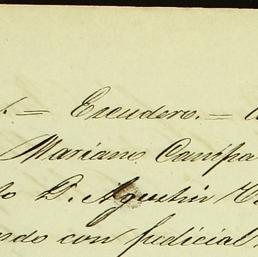 Escudero. =
Mariano Campa
to D. Agustin
ndo con pedicial